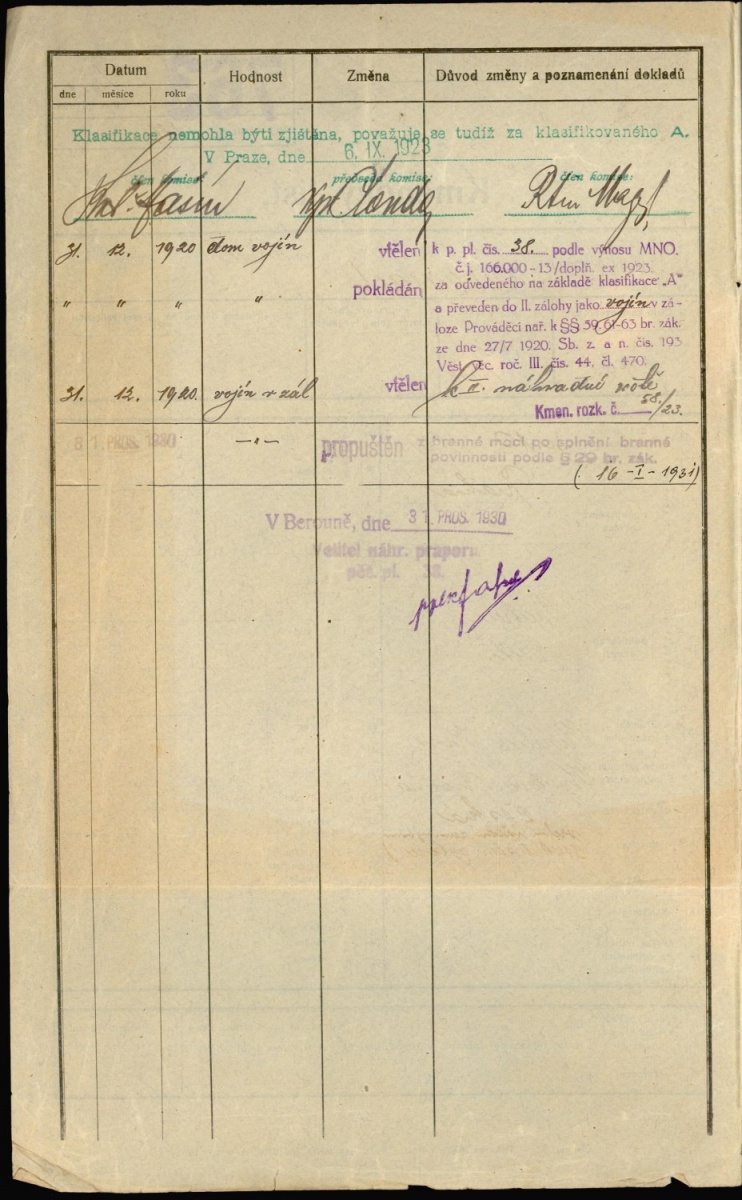 Datum Hodnost Změna Důvod změny a poznamenání dokladů
dne měsíce roku
Klasifikace nemohla býti zjištěna, považuje se tudíž za klasifikovaného A.
V Praze, dne 6. IX. 1923
člen komise předseda komise: člen komise:
31. 12. 1920 dom vojín vtělen k p. pl. čís. 38. podle výnosu MNO.
č. j. 166.000-13/doplň. ex 1923.
" " " " pokládán za odvedeného na základě klasifikace „A"
a převeden do II. zálohy jako vojín v zá-
loze Prováděcí nař. k §§ 59, 61-63 br. zák.
ze dne 27/7 1920. Sb. z. a n. čís. 193
Věst. věc. roč. III. čís. 44. čl. 470.
31. 12. 1920. vojín v zál vtělen k II. náhradné rotě
Kmen. rozk. č. 58./23.
31. PROS. 1930 —"— propuštěn z branné moci po splnění branné
povinnosti podle § 29 br. zák.
(16-I-1931)
V Berouně, dne 31. PROS. 1930
Velitel náhr. praporu
pěš. pl. 38.